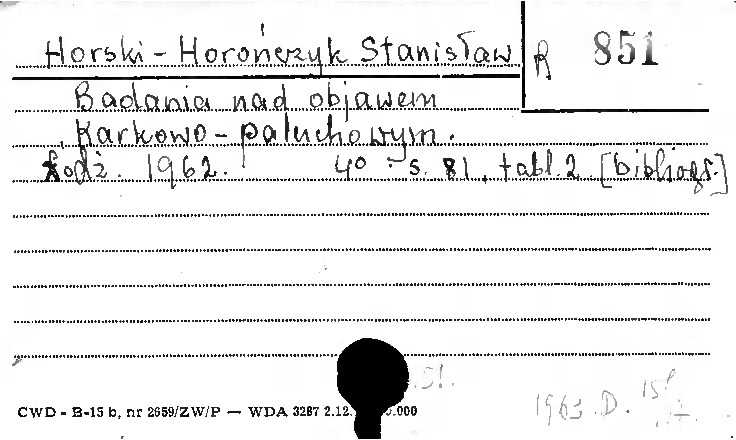 Horski-Horończyk Stanisław
R 851
Badania nad objawem
Karkowo-paluchowym.
Łodź. 1962. 4° s. 81, tabl. 2 [bibliogr.]
CWD - B-15 b, nr 2659/ZW/P — WDA 3287 2.12. .000
1963 .D.